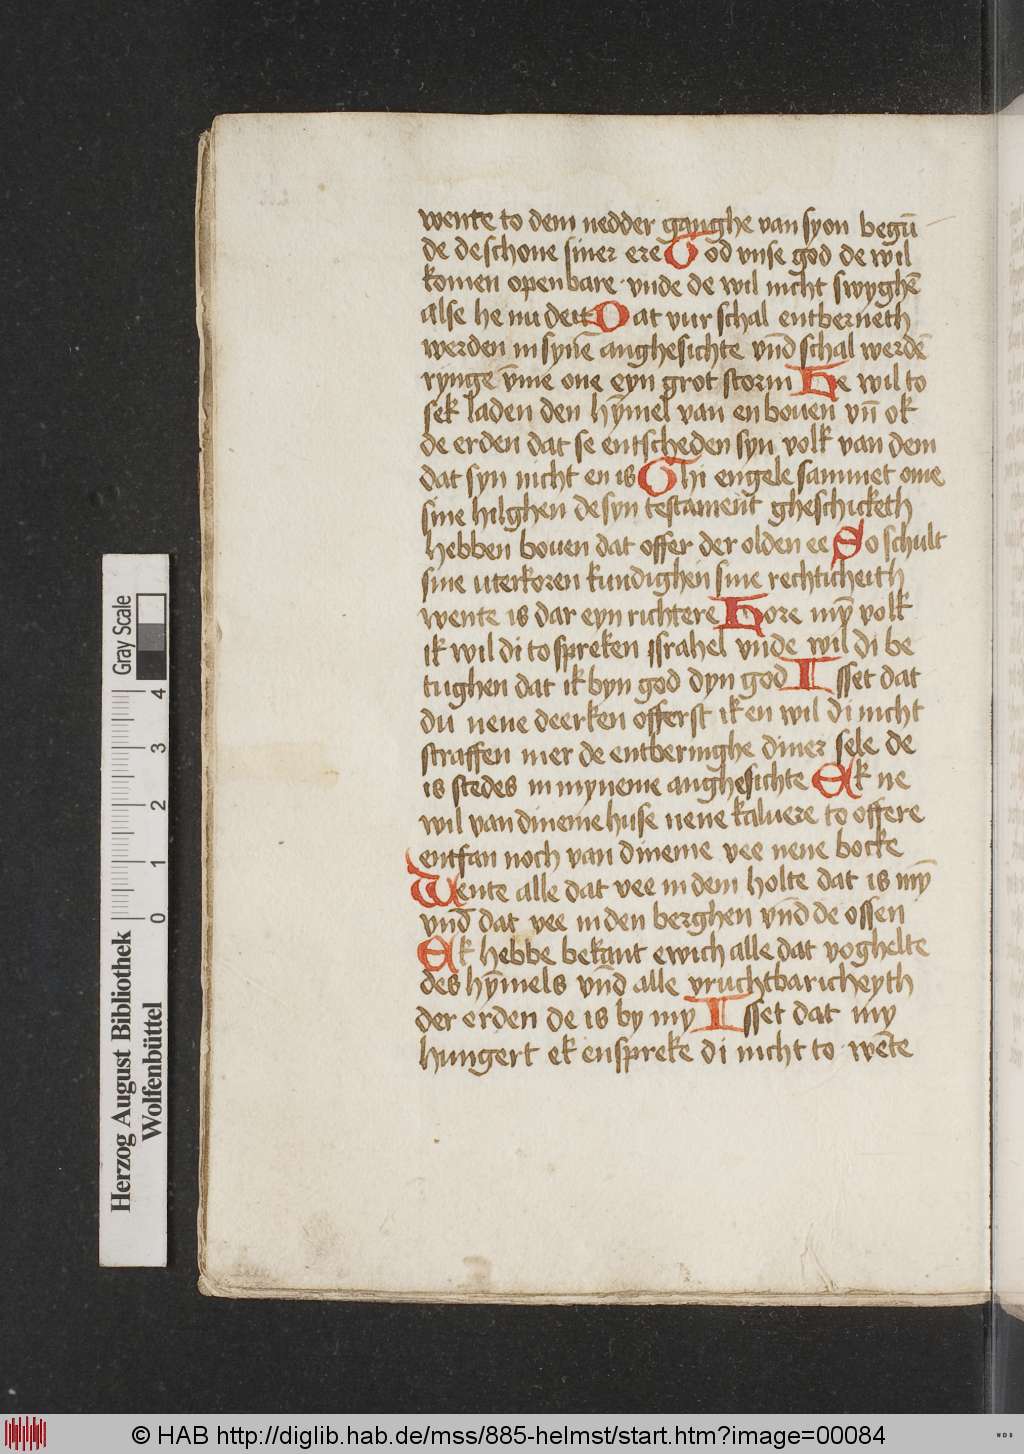 wente to dem nedder ganghe van syon begū
de de schone siner ere God vnse god de wil
komen openbare vnde de wil nicht swyghē
alse he nu deit Dat vur schal entberneth
werden in synē anghesichte vn̄d schal werdē
rynge v̄me one eyn grot storm He wil to
sek laden den hȳmel van en bouen vn̄ ok
de erden dat se entscheden syn volk van dem
dat syn nicht en is Ghi engele sammet ome
sine hilghen de syn testament gheschicketh
hebben bouen dat offer der olden ee So schult
sine uterkoren kundighen sine rechticheith
wente is dar eyn richtere Hore mȳ volk
ik wil di to spreken jsrahel vnde wil di be
tughen dat ik byn god dyn god Isset dat
du nene deerken offerst ik en wil di nicht
straffen mer de entberinghe diner sele de
is stedes in myneme anghesichte Ek ne
wil van dineme huse nene kaluere to offere
entfan noch van dineme vee nene bocke
Wente alle dat vee in dem holte dat is mȳ
vn̄d dat vee in den berghen vn̄d de ossen
Ek hebbe bekant ewich alle dat voghelte
des hȳmels vn̄d alle vruchtbaricheyth
der erden de is by my Isset dat my
hungert ek en spreke di nicht to wēte
Gray Scale
4
3
2
1
0
Herzog August Bibliothek
Wolfenbüttel
© HAB http://diglib.hab.de/mss/885-helmst/start.htm?image=00084